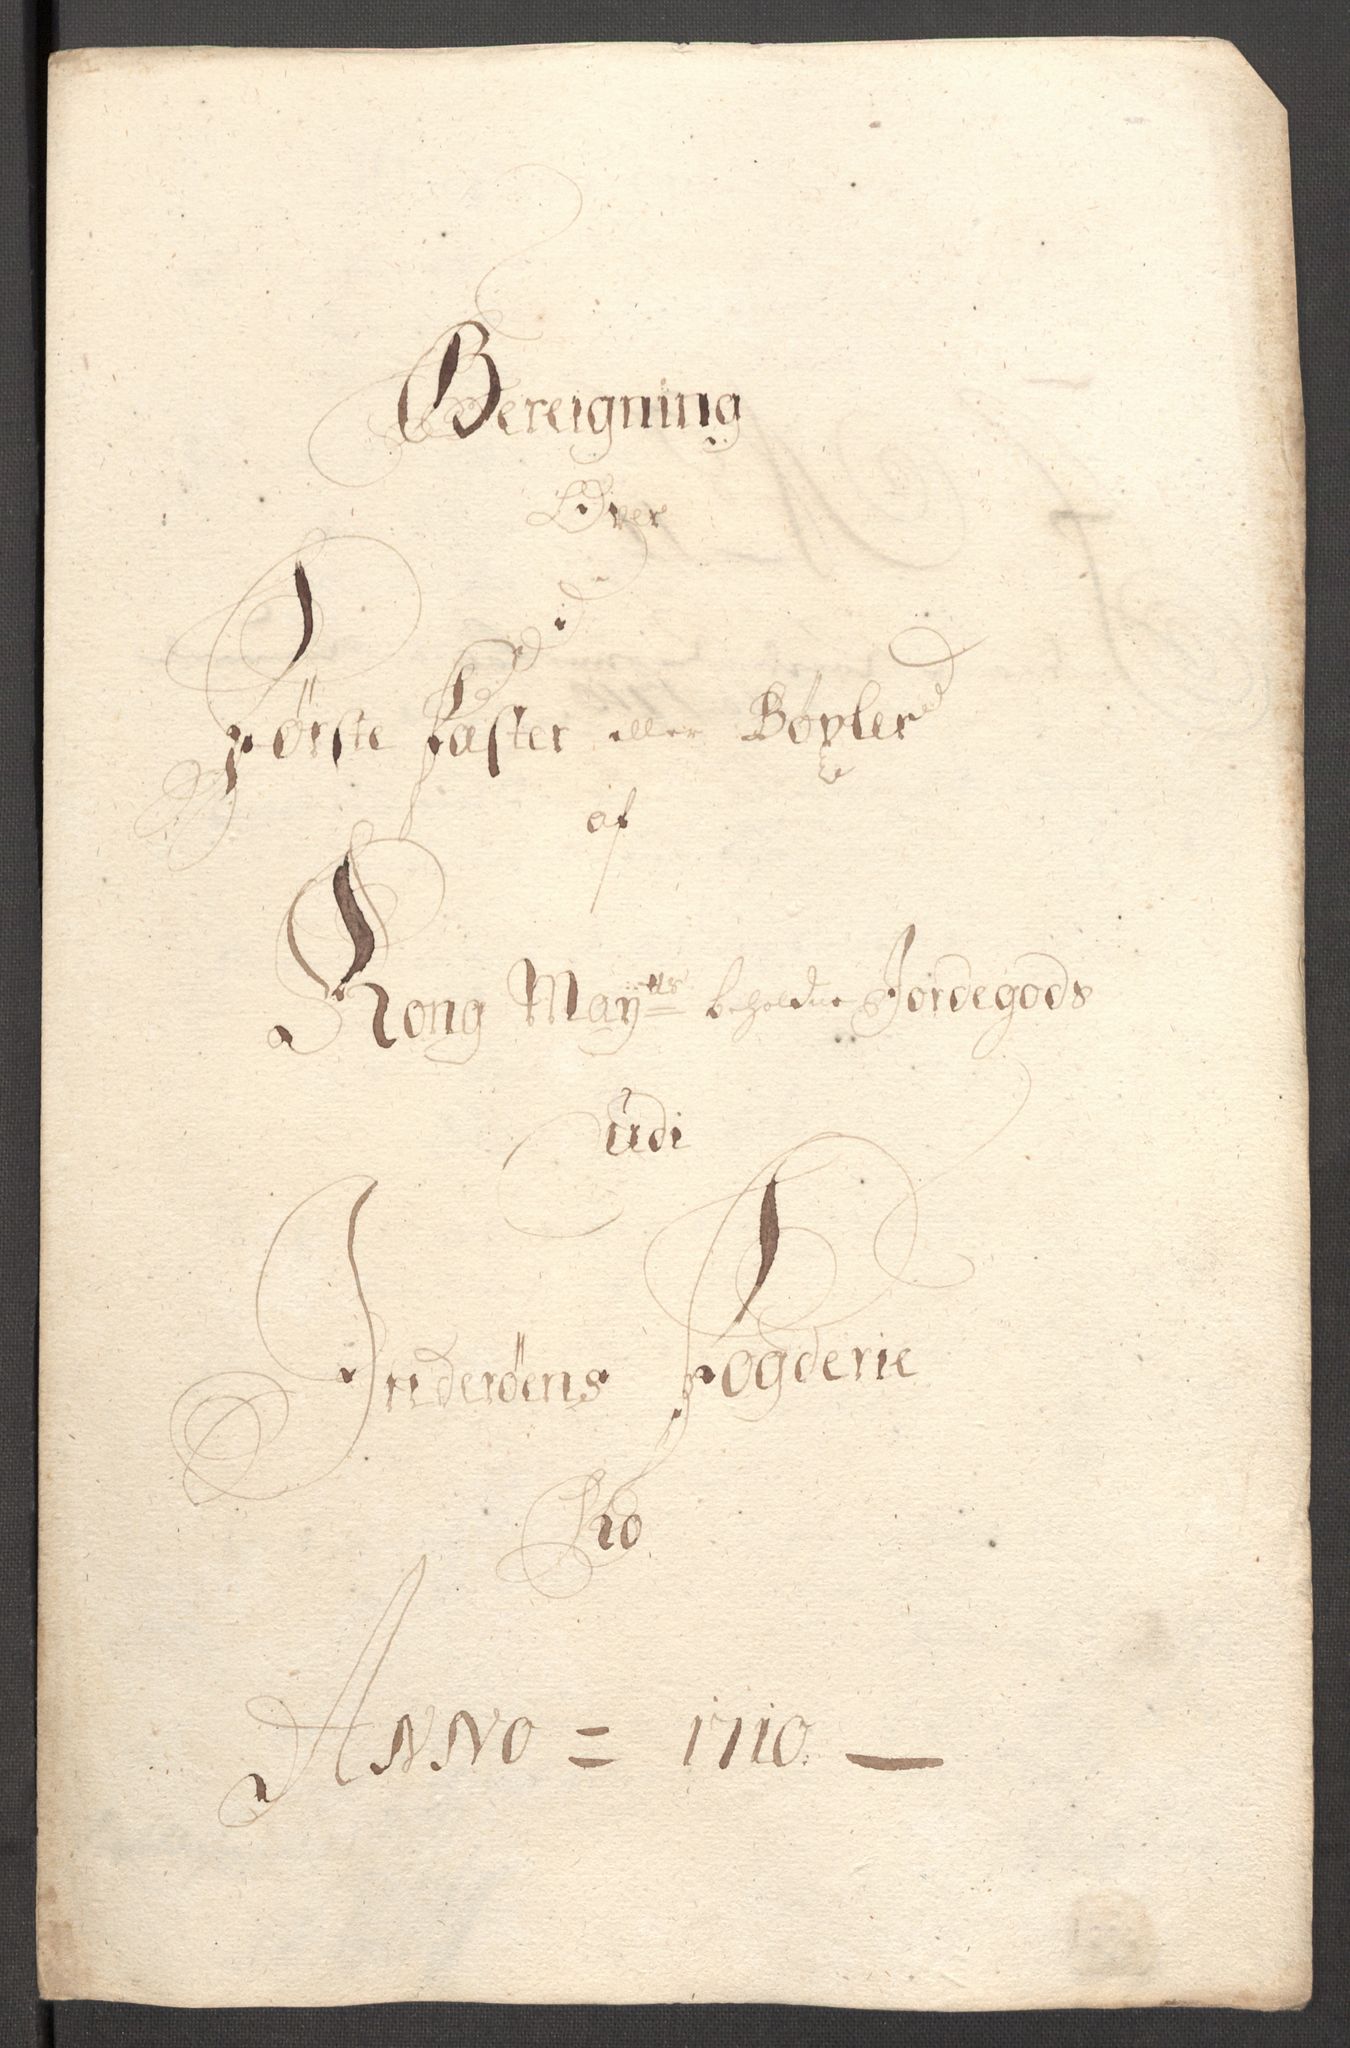 Bereigning
Over
Første fæster eller Bøxler
af
Kong Maÿ:ts beholdne Jordegods
udi
Inderöens Fogderie
Pro
ANNO = 1710. —